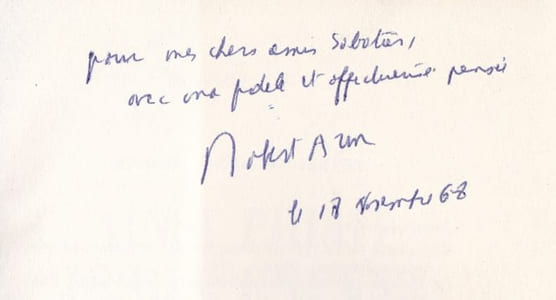 pour mes chers amis Sabatier,
avec ma fidèle et affectueuse pensée
Robert Aron
le 17 68